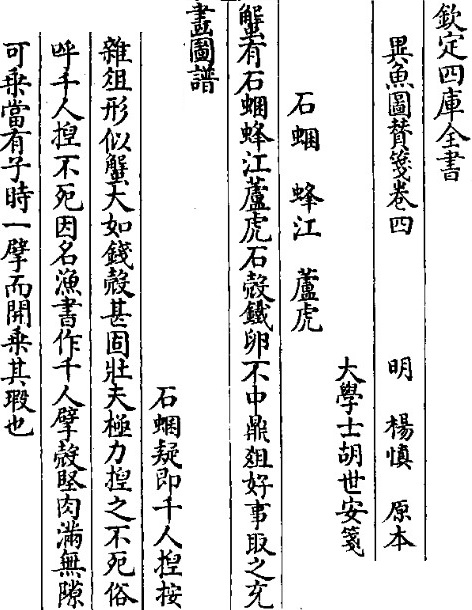 欽定四庫全書
異魚圖贊箋卷四
明 楊慎 原本
大學士胡世安箋
石蜠 蜂江 蘆虎
蟹有石蜠蜂江蘆虎石殻鐵卵不中鼎俎好事取之充
畫圖譜
石蜠疑即千人揑按
雜俎形似蟹大如錢殻甚固壯夫極力揑之不死俗
呼千人揑不死因名漁書作千人擘殻堅肉滿無隙
可乘當有子時一擘而開乘其瑕也